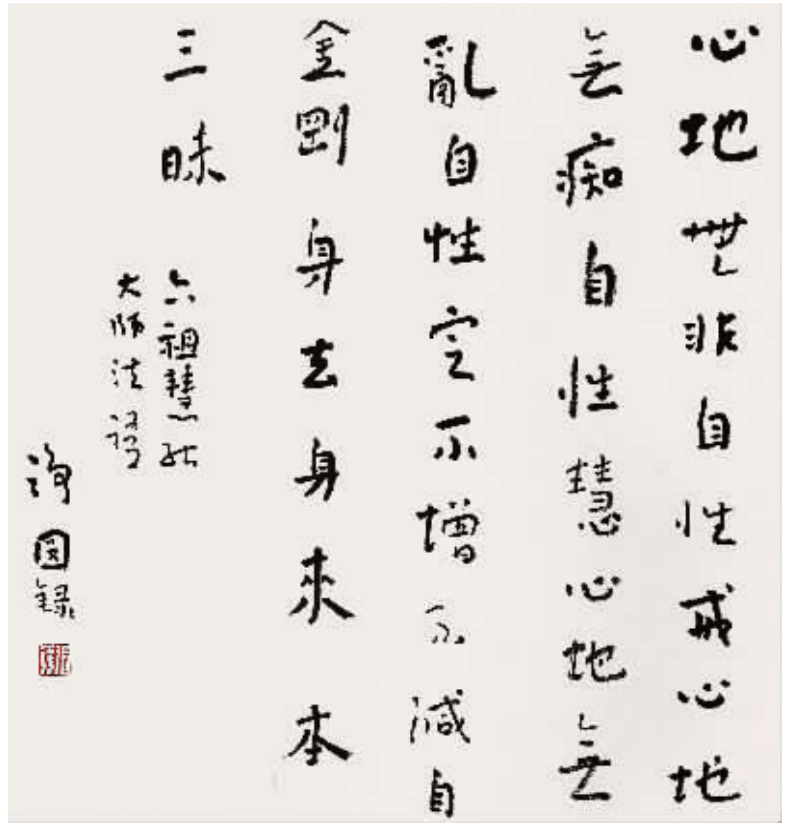 心地無非自性戒心地
無痴自性慧心地無
亂自性定不增不減自
金剛身去身來本
三昧
六祖慧能
大師法語
圆録